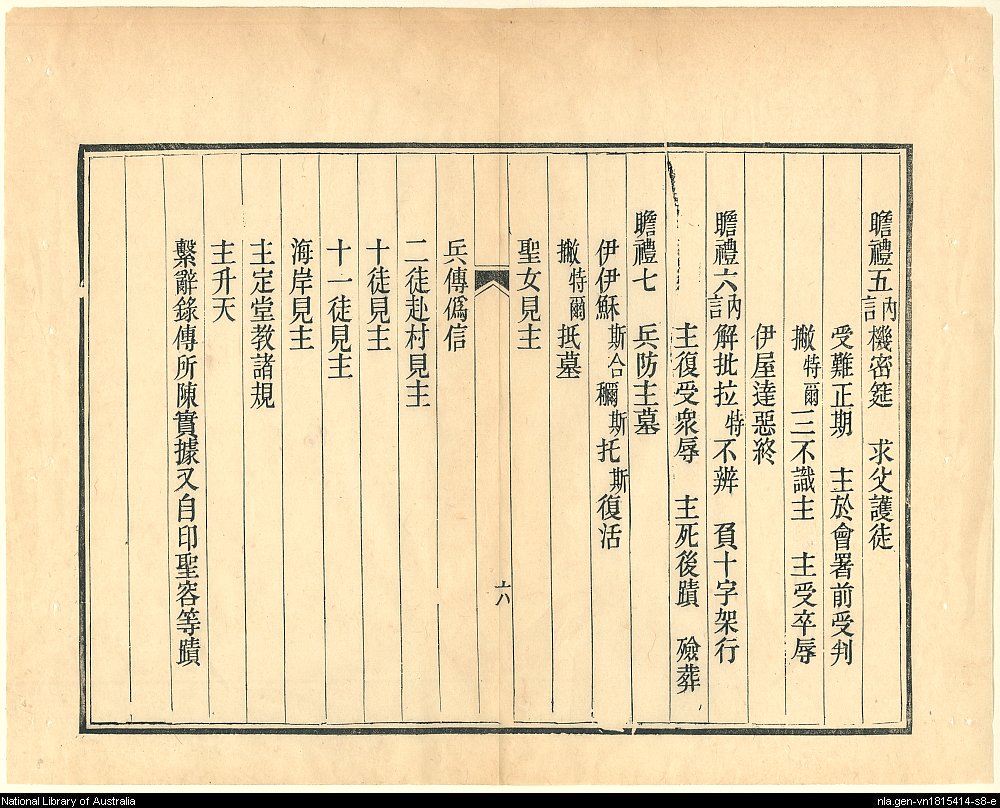 瞻禮五訥機密筵　求父護徒
受難正期　主於會署前受判
撇特爾三不識主　主受卒辱
伊屋達惡終
瞻禮六訥解批拉特不辨　負十字架行
主復受眾辱　主死後蹟　殮葬
瞻禮七　兵防主墓
伊伊穌斯合穪斯托斯復活
撇特爾抵墓
聖女見主
六
兵傳僞信
二徒赴村見主
十徒見主
十一徒見主
海岸見主
主定堂教諸規
主升天
繫辭錄傳所陳實據又自印聖容等蹟
National Library of Australia
nla.gen-vn1815414-s8-e